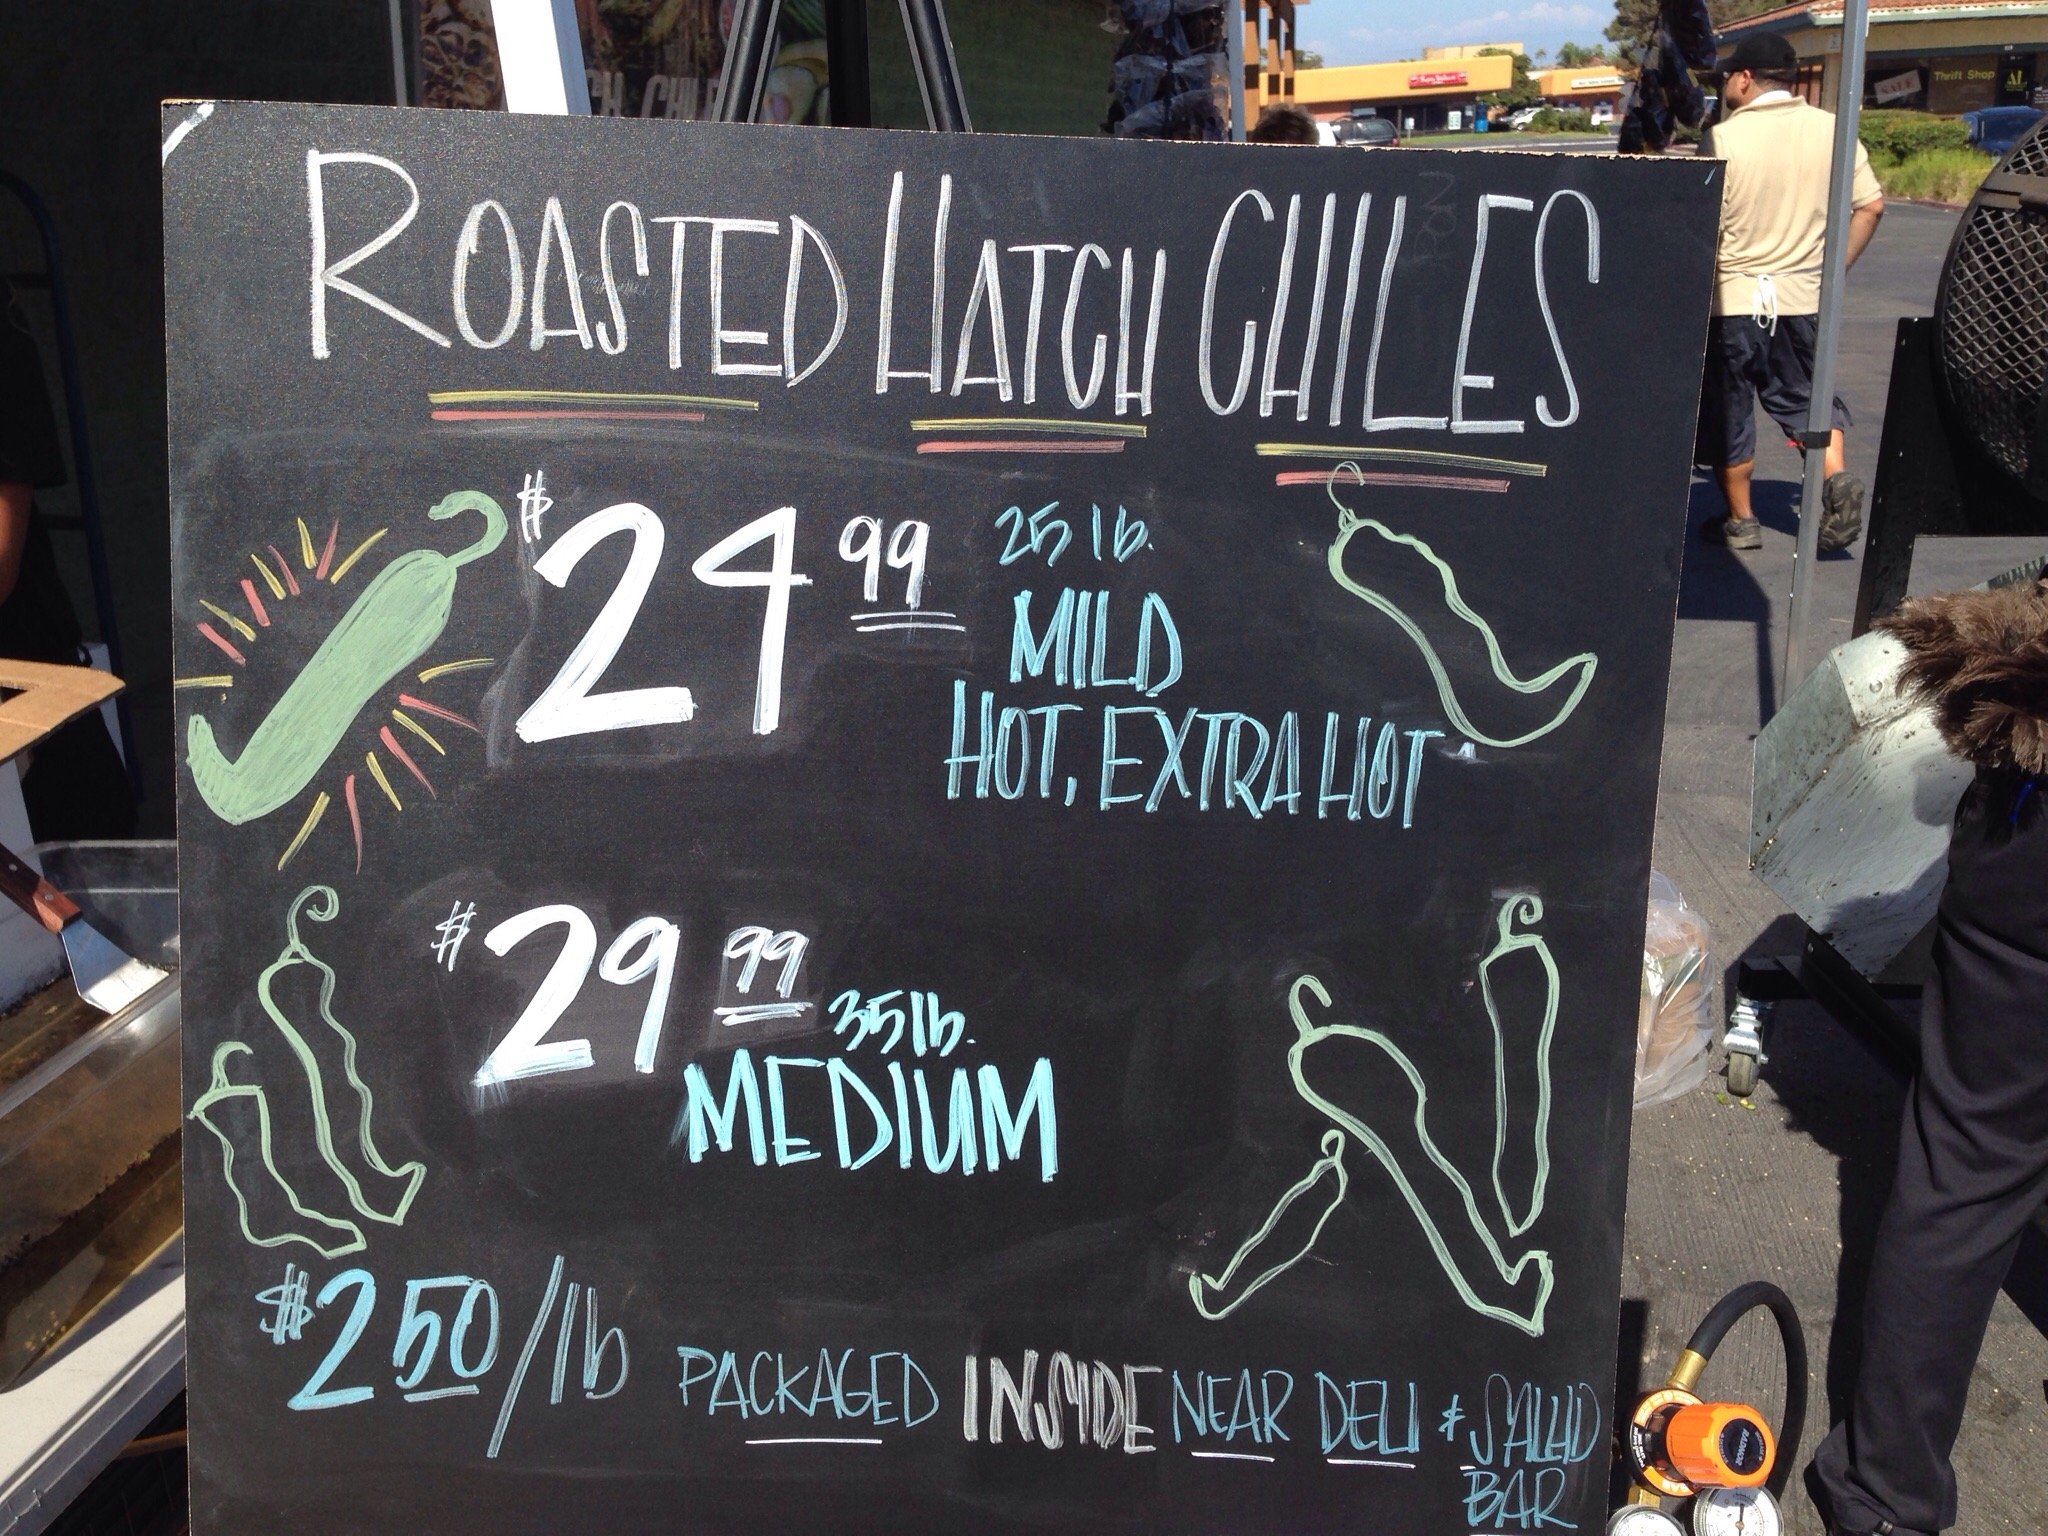 ROASTED HATCH CHILES
$24 99 25 lb.
MILD
HOT, EXTRA HOT
$29 99 35 lb.
MEDIUM
$2 50/lb PACKAGED INSIDE NEAR DELI & SALAD
BAR
Thrift Shop
SALE